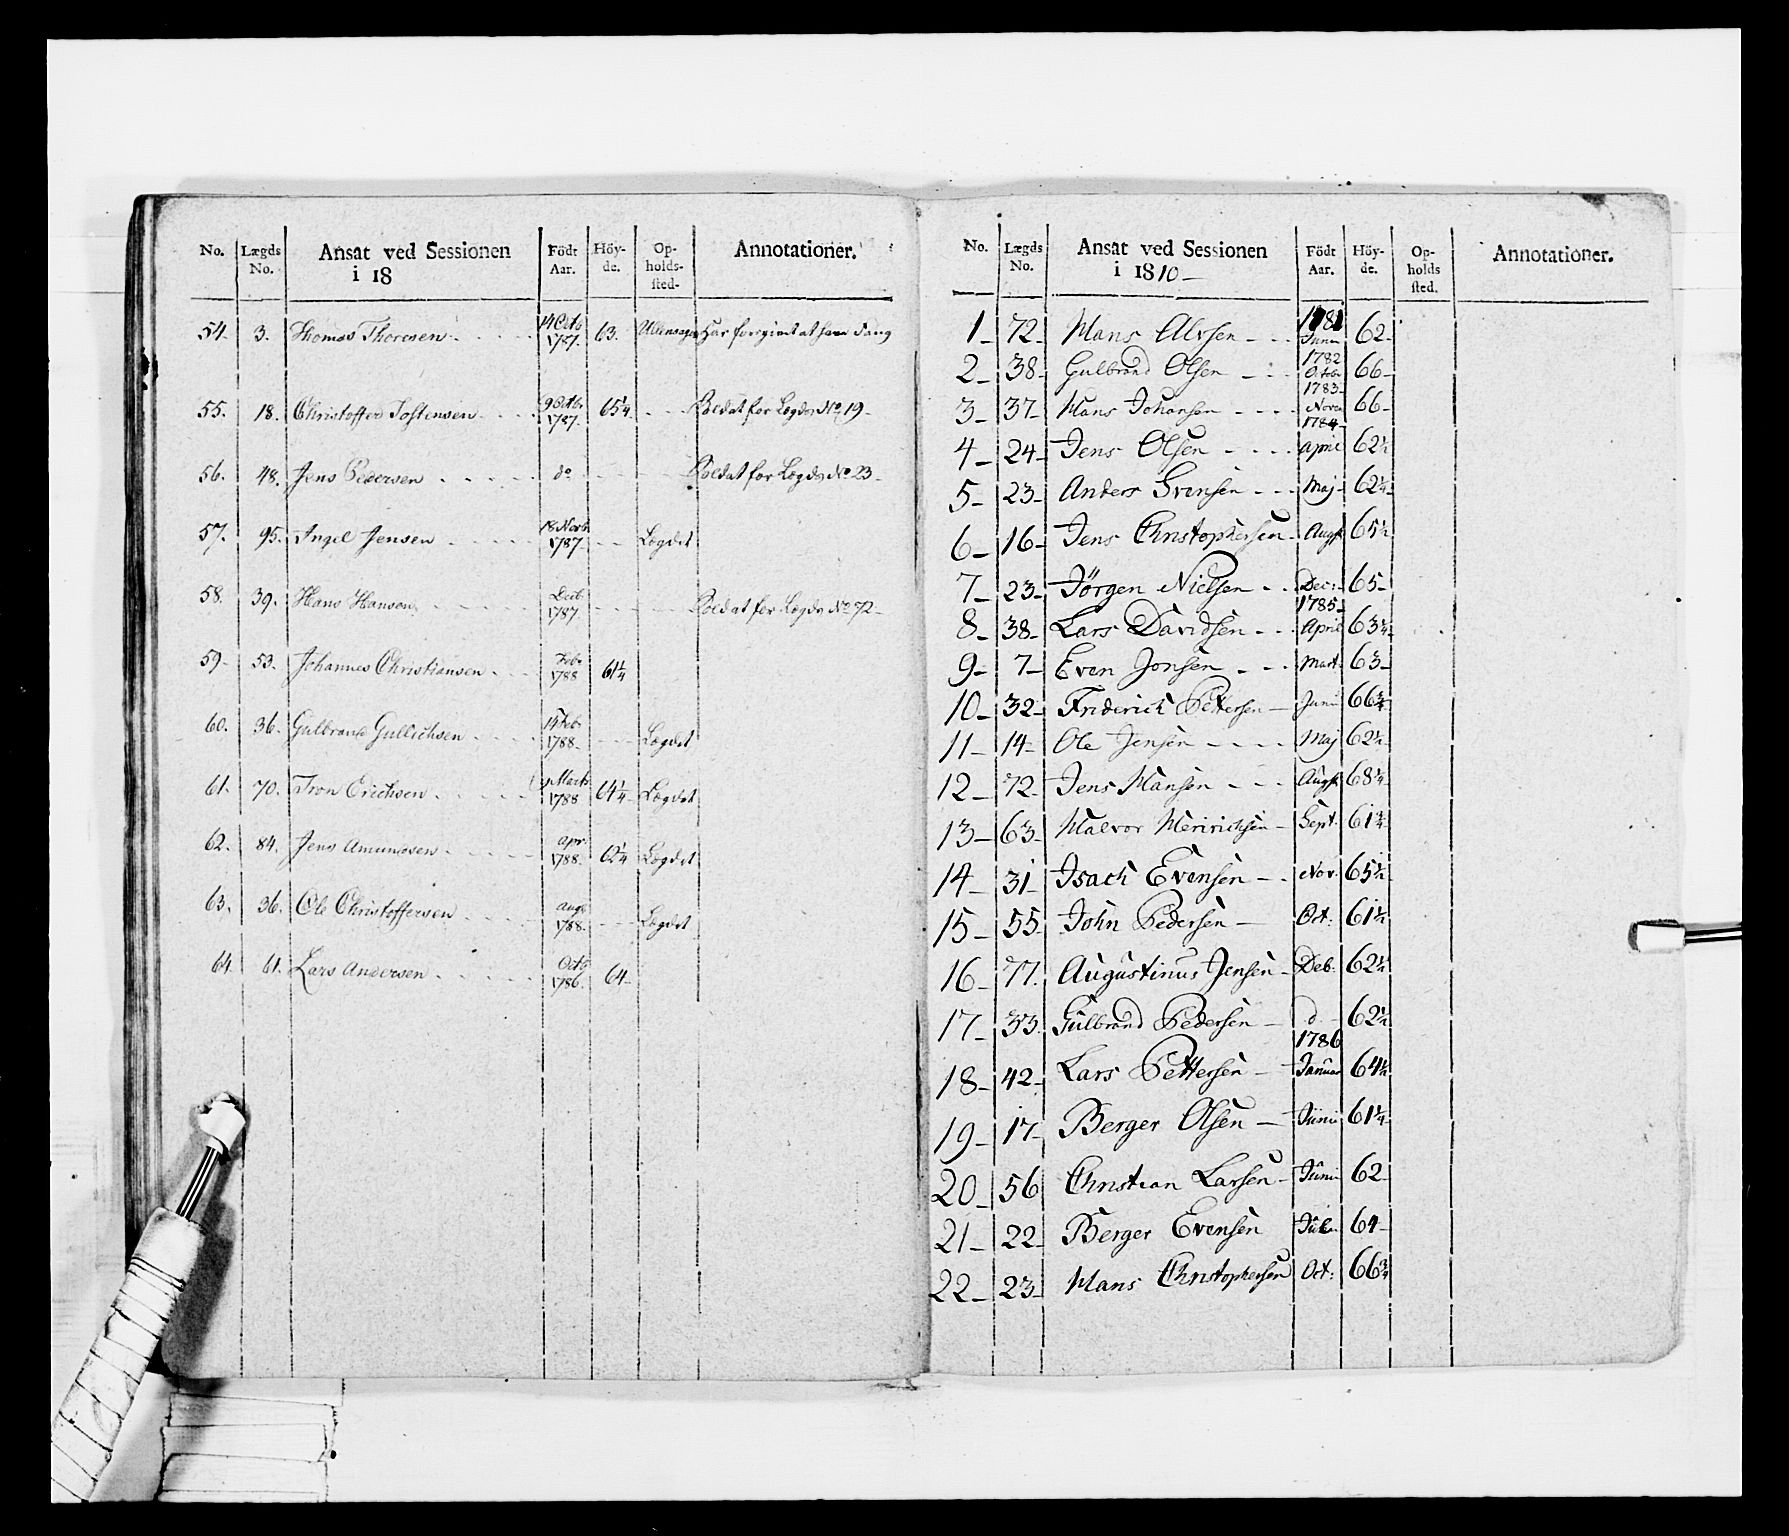 No. Lægds No. Ansat ved Sessionen i 18 Födt Aar. Höy-de. Op-holds-sted. Annotationer.
54. 3. Thomas Thoresen 14 Octb 1787. 63. Ullensager Har foregivet at have
55. 18. Christoffer Tostensen 9 Octb. 1787. 65¼ Soldat for Lægds No 19
56. 48. Jens Pedersen do Soldat for Lægds No 23
57. 95. Ingel Jensen 18 Novb. 1787 Lægdet
58. 39. Hans Hansen Decb 1787. Soldat for Lægds No 72
59 53. Johannes Christiansen Feb. 1788 61¼
60. 36. Gulbrand Gullichsen 14 Feb. 1788 Lægdet
61. 70. Iron Erichsen Marts 1788 64¼ Lægdet
62. 84. Jens Amundsen Apr. 1788. 62¼ Lægdet
63. 36. Ole Christoffersen Aug. 1788. Lægdet
64 61. Lars Andersen Octb 1786. 64
No. Lægds No. Ansat ved Sessionen i 1810 Födt Aar. Höy-de. Op-holds sted. Annotationer.
1 72 Hans Alvsen 1781 Junii 62
2 38 Gulbrand Olsen 1782 Octbr 66
3 37 Hans Johansen 1783 Novbr 66
4 24 Jens Olsen 1784 April 62½
5 23 Anders Svensen Maj 62¼
6 16 Jens Christophersen Augst 65½
7 23 Jörgen Nielsen Decr 65
8 38 Lars Davidsen 1785 April 63¼
9 7 Even Jonsen Mart 63
10 32 Friderich Pettersen Junii 66¾
11 14 Ole Jensen Maj 62½
12 72 Jens Hansen Augst 68¼
13 63 Halvor Henrichsen Sept. 61¾
14 31 Isach Evensen Nov. 65½
15 55 John Pedersen Oct: 61½
16 77. Augustinus Jensen Deb: 62½
17 33 Gulbrand Pedersen d 62½
18 42 Lars Pettersen 1786 Januar 64½
19 17 Berger Olsen Junii 61¼
20 56 Christian Larsen Junii 62
21 22 Berger Evensen Juli 64
22 23 Hans Christophersen Oct: 66¾